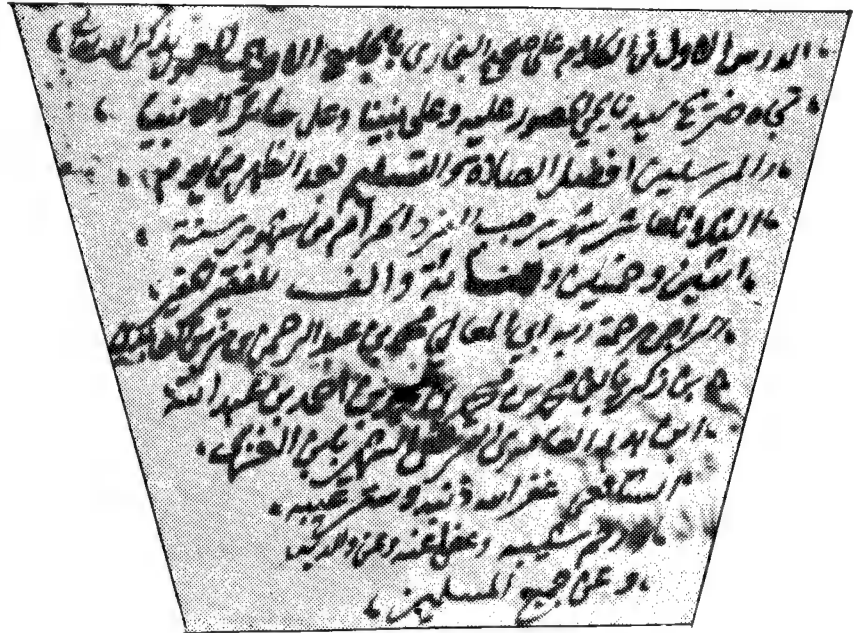 الدرس الاول في الكلام على صحيح البخاري بالجامع الاموي المعمور بذكر الله تعالى
تجاه ضريح سيدنا يحيى الحصور عليه وعلى نبينا وعلى سائر الانبيا
والمرسلين افضل الصلاة والتسليم بعد الظهر من يوم
الثلاثا عاشر شهر رجب الفرد الحرام من شهور سنة
اثنين وخمسين و مائة والف للفقير الحقير
الراجي رحمة ربه ابي المعالي محمد بن عبد الرحمن بن زين العابدين
بن زكريا بن محمد بن محمد بن احمد بن عبد الله
ابن بدر العامري الدمشقي الشهير بابن الغزي
الشافعي غفر الله ذنبه وستر عيبه
ورحم شيبه وعفا عنه وعن والديه
وعن جميع المسلمين